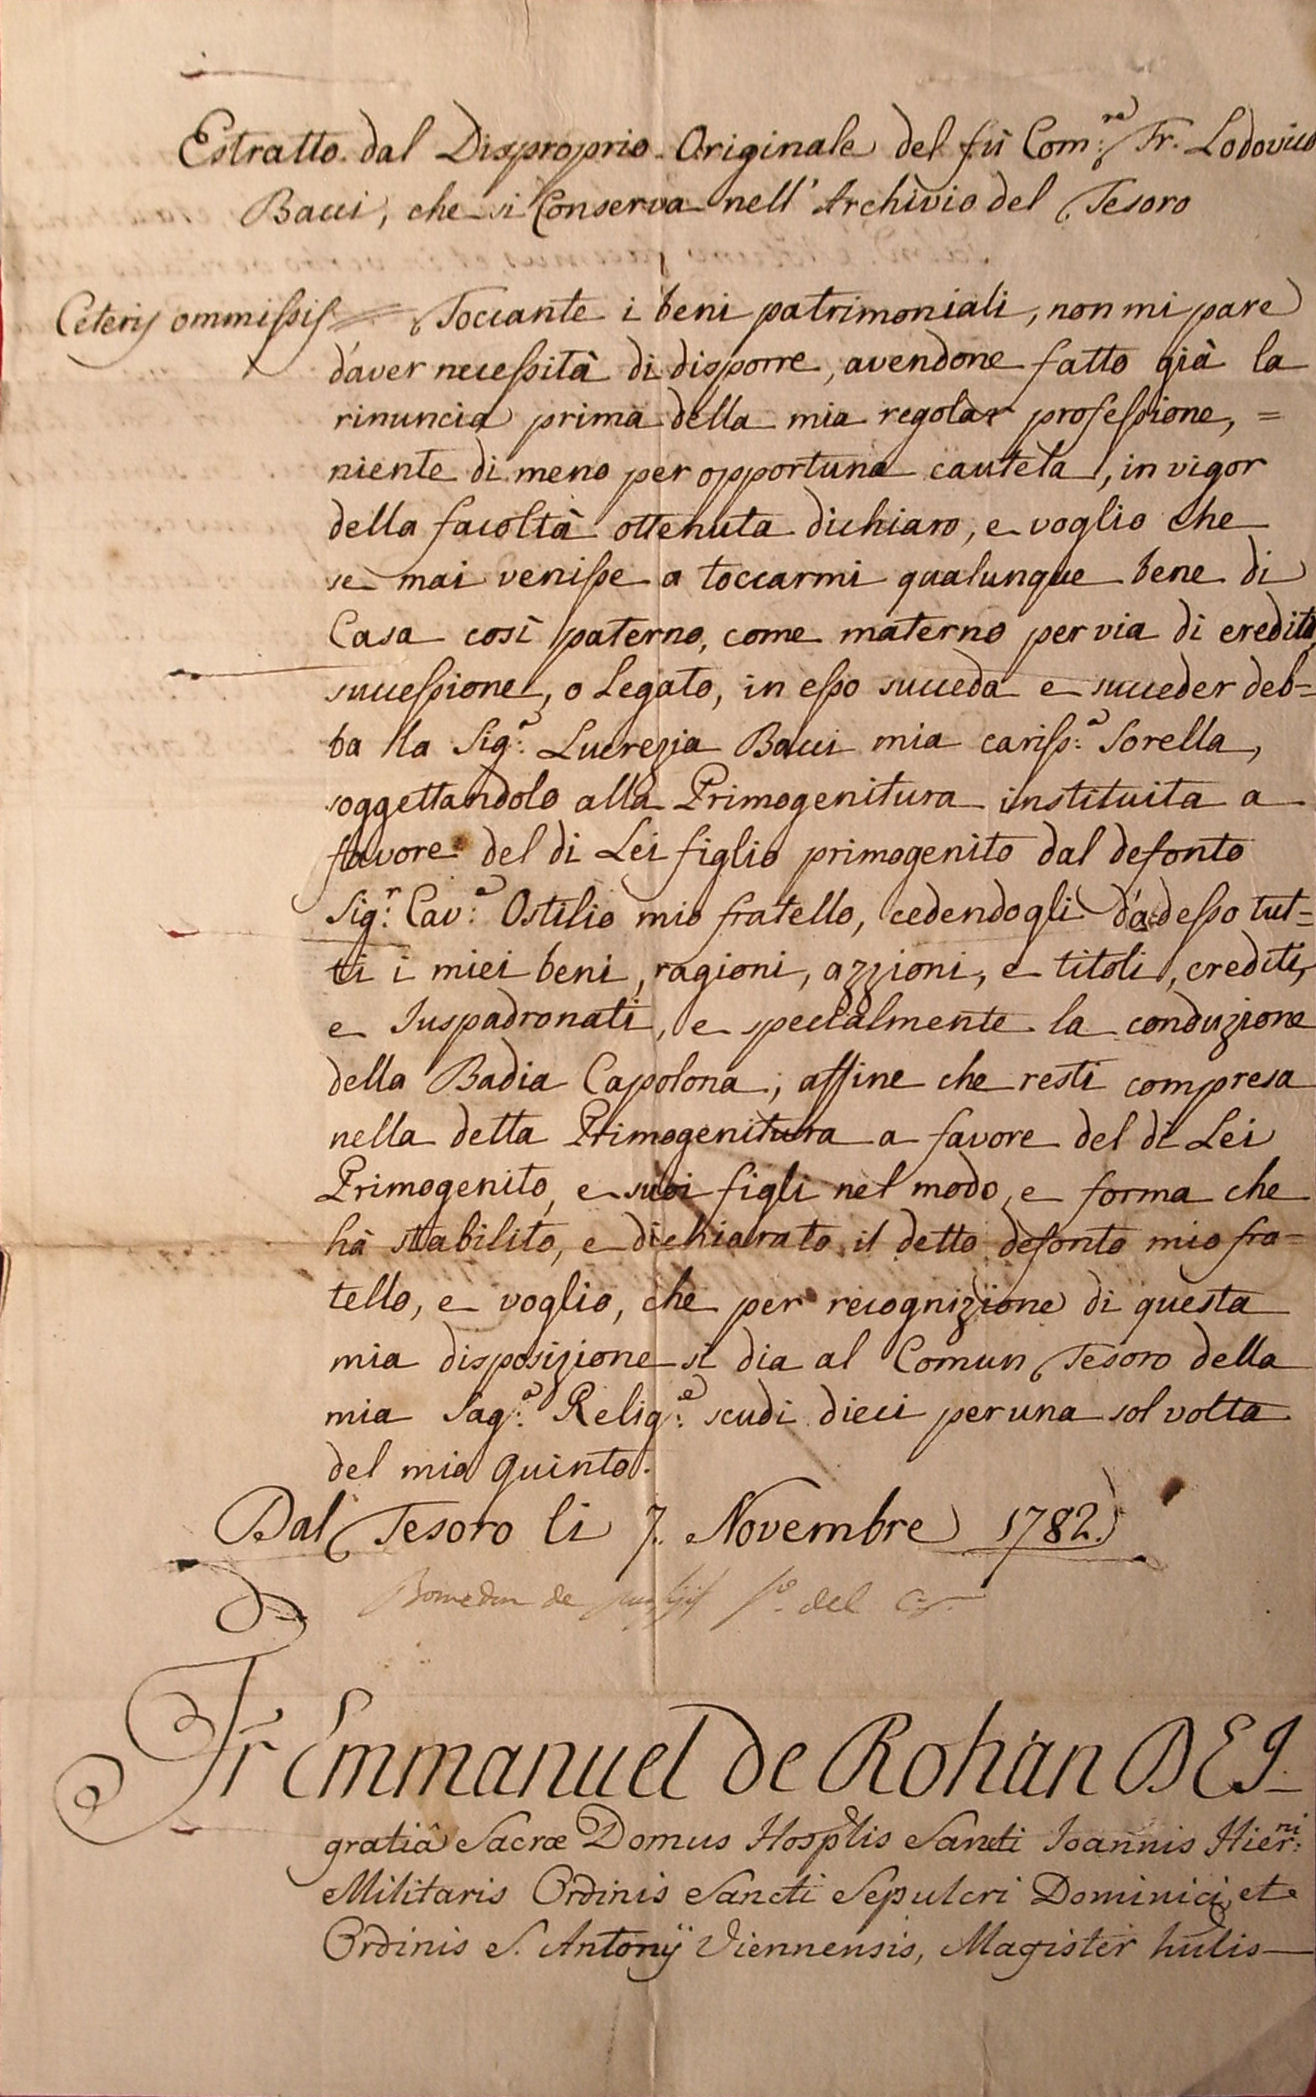 Estratto dal Disproprio Originale del fù Com:re Fr. Lodovico
Bacci, che si Conserva nell' Archivio del Tesoro
Ceteris ommissis Toccante i beni patrimoniali, non mi pare
d'aver necessità di disporre, avendone fatto già la
rinuncia prima della mia regolar professione, =
niente di meno per opportuna cautela, in vigor
della facoltà ottenuta dichiaro, e voglio che
se mai venisse a toccarmi qualunque bene di
Casa così paterno, come materno per via di eredità
successione, o Legato, in esso succeda e succeder deb=
ba la Sig:a Lucrezia Bacci mia cariss:a Sorella,
soggettandolo alla Primogenitura instituita a
favore del di Lei figlio primogenito dal defonto
Sig:r Cav:e Ostilio mio fratello, cedendogli d'adesso tut=
ti i miei beni, ragioni, azzioni, e titoli, crediti,
e Juspadronati, e specialmente la conduzione
della Badia Capolona, affine che resti compresa
nella detta Primogenitura a favore del di Lei
Primogenito, e suoi figli nel modo, e forma che
hà stabilito, e dichiarato il detto defonto mio fra=
tello, e voglio, che per recognizione di questa
mia disposizione si dia al Comun Tesoro della
mia Sag:a Relig:e scudi dieci per una sol volta
del mio quinto.
Dal Tesoro li 7. Novembre 1782.
de del
Fr Emmanuel de Rohan DEI
gratiâ Sacræ Domus Hosplis Sancti Ioannis Hier:ni
Militaris Ordinis Sancti Sepulcri Dominici, et
Ordinis S. Antonij Viennensis, Magister hulis